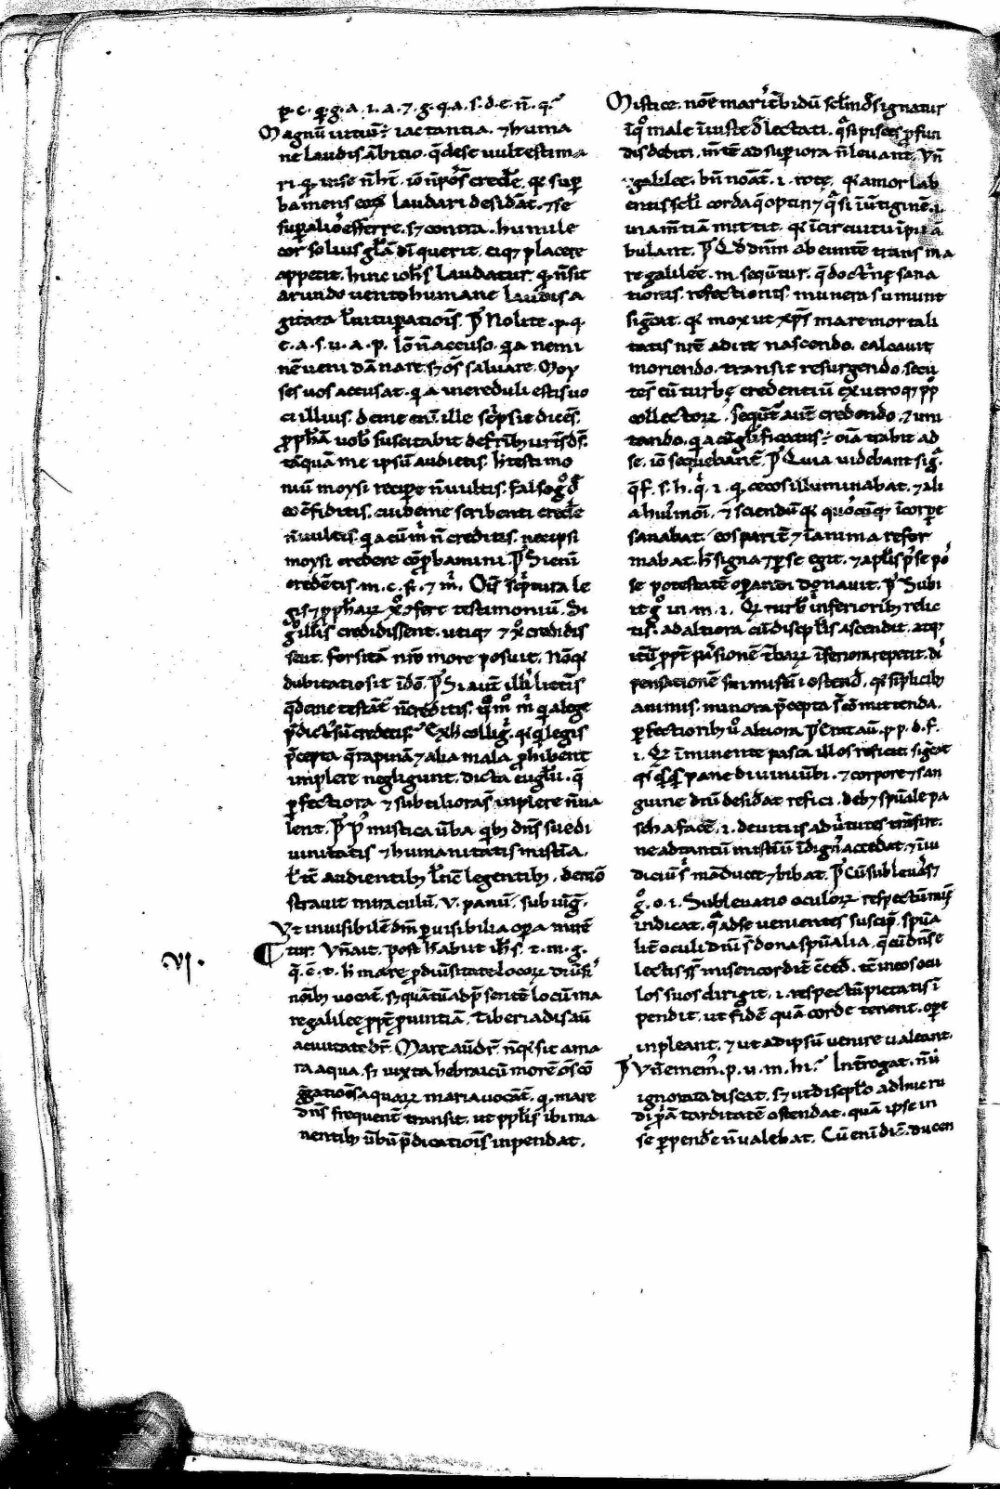 p̄. c. q̄. g. a. i. a. ⁊ g. q. a. s. d. e. n̄. q.
Magnū uitiū ē iactantia. ⁊ huma
ne laudis ābitio. q̄ de se uult estima
ri. q̇ in se n̄ hēt. iō n̄ pōs credẽ. q̇ suꝑ
ba mens
laudari desiđat. ⁊ se
suꝑ aliōs efferre. s; ⁊ contra. humile
cor solius gl̄am dī querit. eiq; placere
appetit. hinc ioh̄s laudatur. q̇ n̄ sit
arundo uento humane laudis a
gitata l̄ uituꝑationis. ꝑ Nolite. p. q.
e. a. s. u. a. p. Iō n̄ accuso. q̇a nemi
nē ueni dānare. s; ōs saluare. Moy
ses uos accusat. q̇a increduli estis uo
ci illius. de me eni ille scͥpsit dicēs.
ꝓph̄am uob̄ suscitabit de fr̄ib; ur̄is d̄s.
tāquā me ipsū audietis. h̄ testimo
niū moysi reciꝑe n̄ uultis. falso ḡ đ
eo cōfiditis. cui de me scribenti credẽ
n̄ uultis. q̇a cū m̄ n̄ creditis. nec ipsi
moysi credere cōprobamini. ꝑ Si eni
credētis. m. c. f. ⁊ m̄. Oīs scͥptura le
gis ⁊ ꝓph̄aꝝ x̄o fert testimoniū. Si
ḡ illis credidissent. utiq; ⁊ x̄o credidis
sent. forsitā nr̄o more posuit. Nō q̇
dubitatio sit ī dō. ꝑ Si aut̄ illi lictis
q̄ de me testāt̄ n̄ creditis. q̄m̊ m̄ q̇ a lege
p̄dictꝰ sū credetis. Ex h̄ collig̊. q̇ q̇ legis
p̄cepta q̄ rapinā ⁊ alia mala ꝓhibent
implere negligunt. dicta euḡlii. q̄
ꝑfectiora ⁊ subtiliora s̄ inplere n̄ ua
lent. ꝑ mistica ūba q̇b; dn̄s sue di
uinitatis ⁊ humanitatis mist̄ia.
l̄ tē audientib; l̄ nc̄ legentib;. demō
strauit miraculū. v. panū. sub iūg̊.
Vt inuisibilē dm̄ ꝑ uisibilia oꝑa miret̄
tur. Vn̄ ait. post h̄ abiit ih̄s. t. m. g.
.VI.
q̇. ē. t. h̄ mare ꝓ diūsitate locoꝝ diūsi
nōib; uocat̄. s; quātū ad p̄sentē locū ma
re galilee ꝓpt̄ ꝓuintiā. tiberiadis aū
a ciuitate dr̄. Mare aū dr̄. n̄ q̇ sit ama
ra aqua. s; iuxta hebraicū morē ōs cō
gregatiōes aquaꝝ maria uocāt̄. q̇ mare
dn̄s frequent̄ transit. ut ppl̄is ibi ma
nentib; ūbū p̄dicationis inpendat.
Mistice. nōe maris t̄bidū scl̄m dsignatur
ī q̇ male īuiste đlectati. q̄si pisces ꝓfun
dis dediti. m̄tē ad suꝑiora n̄ leuant. Vn̄
galilee. bn̄ noāt̄. i. rote. q̇ amor lab
entis scl̄i corda q̄ optin; q̄si ī ūtiginē. i.
in am̄tiam mittit. q̇ ī circuitu īpii ā
bulant. ꝑ Q̇d dn̄m abeuntē trans ma
re galilee. m. sequt̄ur. q̄ doctͥnę sana
tionis. refectionis. munera sumunt
signat. q̇ mox ut xp̄s mare mortali
tatis nr̄e adiit nascendo. calcauit
moriendo. transit resurgendo. secu
te s̄ eū turbę credentiū ex utroq; pp̄
collectoꝝ. Sequt̄ aut̄ credendo. ⁊ imi
tando. q̇a cū gl̄ificatus ē oīa trahit ad
se. iō sequebant̄. ꝑ Quia uidebant sig̊.
q̄ f. s. h. q̇. i. q̇. cecos illuminabat. ⁊ ali
a huꝰmōi. ⁊ sciendū q̇ quōcūq; ī corꝑe
sanabat. eos parit̄ ⁊ ī anima refor
mabat. h̄ signa ⁊ ꝑ se egit. ⁊ apl̄is p̄ se po
se potestatē oꝑandi donauit. ꝑ Subi
it ḡ in m. i. Q̇ turb̄ inferiorib; relic
tis. ad altiora cū discipl̄is ascendit. atq;
itū ꝓpt̄ passionē t̄baꝝ īferiora repetit. di
pensationē sui mist̄ii ostend̄. q̇ simplicib;
animis. minora p̄cepta s̄ cōmittenda.
ꝑfectiorib; ū altiora. ꝑ Erat aū. p. p. d. f.
i. Q̇ īminente pasca illos reficit. signat
q̇ q̇sq̇s pane diuini ūbi. ⁊ corpore ⁊ san
guine dn̄i desiđat refici. deb; spūale pa
scha facẽ. i. de uitiis ad ūtutes trāsire.
ne ad tantū mist̄iū īdigne accedat. ⁊ iu
diciū s̄ māducet ⁊ bibat. ꝑ Cū subleuass;
ḡ. o. i. Subleuatio oculoꝝ respectū mis̄
indicat. q̄ ad se uenientes suscip̄. spūa
lit̄ oculi dn̄i s̄ dona spūalia. q̄ cū dn̄s e
lectis s̄s misericordit̄ cōced̄. tē in eos ocu
los suos dirigit. i. respectū pietatis ī
pendit. ut fidē quā corde tenent. oꝑe
inpleant. ⁊ ut ad ipsū uenire ualeant.
ꝑ Vn̄ emem̄. p. u. m. hi. Introgat. n̄ ū
ignorata discat. s; ut discipl̄o adhuc ru
di ꝓpͥā tarditatē ostendat. quā ipse in
se ꝑpendẽ n̄ ualebat. Cū eni dīc̄. ducen